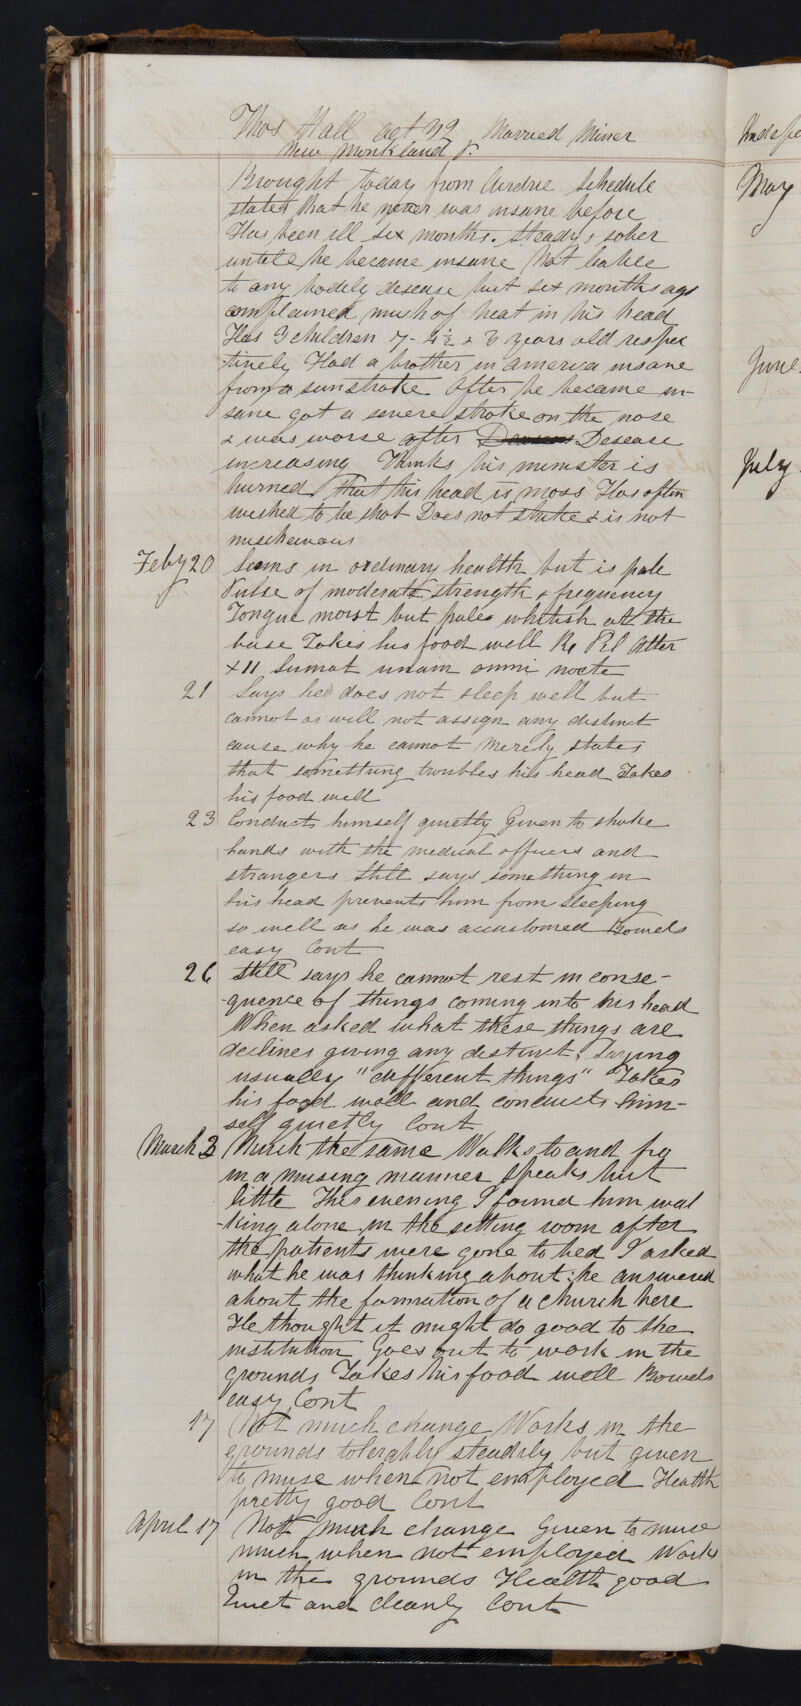 Thos Hall aet 32 Married Miner
New Monkland P.
Brought today from Airdrie Schedule
states that he never was insane before
Has been ill six months. Steady & sober
untill he became insane Not liable
to any bodily disease but six months ago
complained much of heat in his head
Has 3 children 7 - 4½ & 3 years old respec
tively Had a brother in America insane
from a sunstroke After he became in-
sane got a severe stroke on the nose
& was worse after Disease
increasing Thinks his minister is
burned that his head is moss Has often
wished to be shot Does not strike & is not
mischevous
Feby 20 Seems in ordinary health but is pale
Pulse of moderate strength & frequency
Tongue moist but pale & whitish at the
base Takes his food well Rx Pil After
x11 Sumat unam omni nocte
21 Says he does not sleep well but
cannot or will not assign any distinct
cause why he cannot Merely states
that something troubles his head Takes
his food well
23 Conducts himself quietly Given to shake
hands with the medical officers and
strangers Still says something in
his head prevents him from sleeping
so well as he was accustomed Bowels
easy Cont
26 Still says he cannot rest in conse-
-quence of things coming into his head
When asked what these things are
declines giving any distinct, Saying
usually "different things" Takes
his food well and conducts him-
self quietly Cont
March 3 Much the same Walks to and fro
in a musing manner speaks but
little This evening I found him wal
-king alone in the sitting room after
the patients were gone to bed I asked
what he was thinking about: he answered
about the formation of a church here
He thought it might do good to the
institution Goes out to work in the
grounds Takes his food well Bowels
easy Cont
17 Not much change Works in the
grounds tolerably steadily but given
to muse when not employed Health
pretty good Cont
April 17 Not much change Given to muse
much when not employed Works
in the grounds Health good
Quiet and cleanly Cont
May
June
July